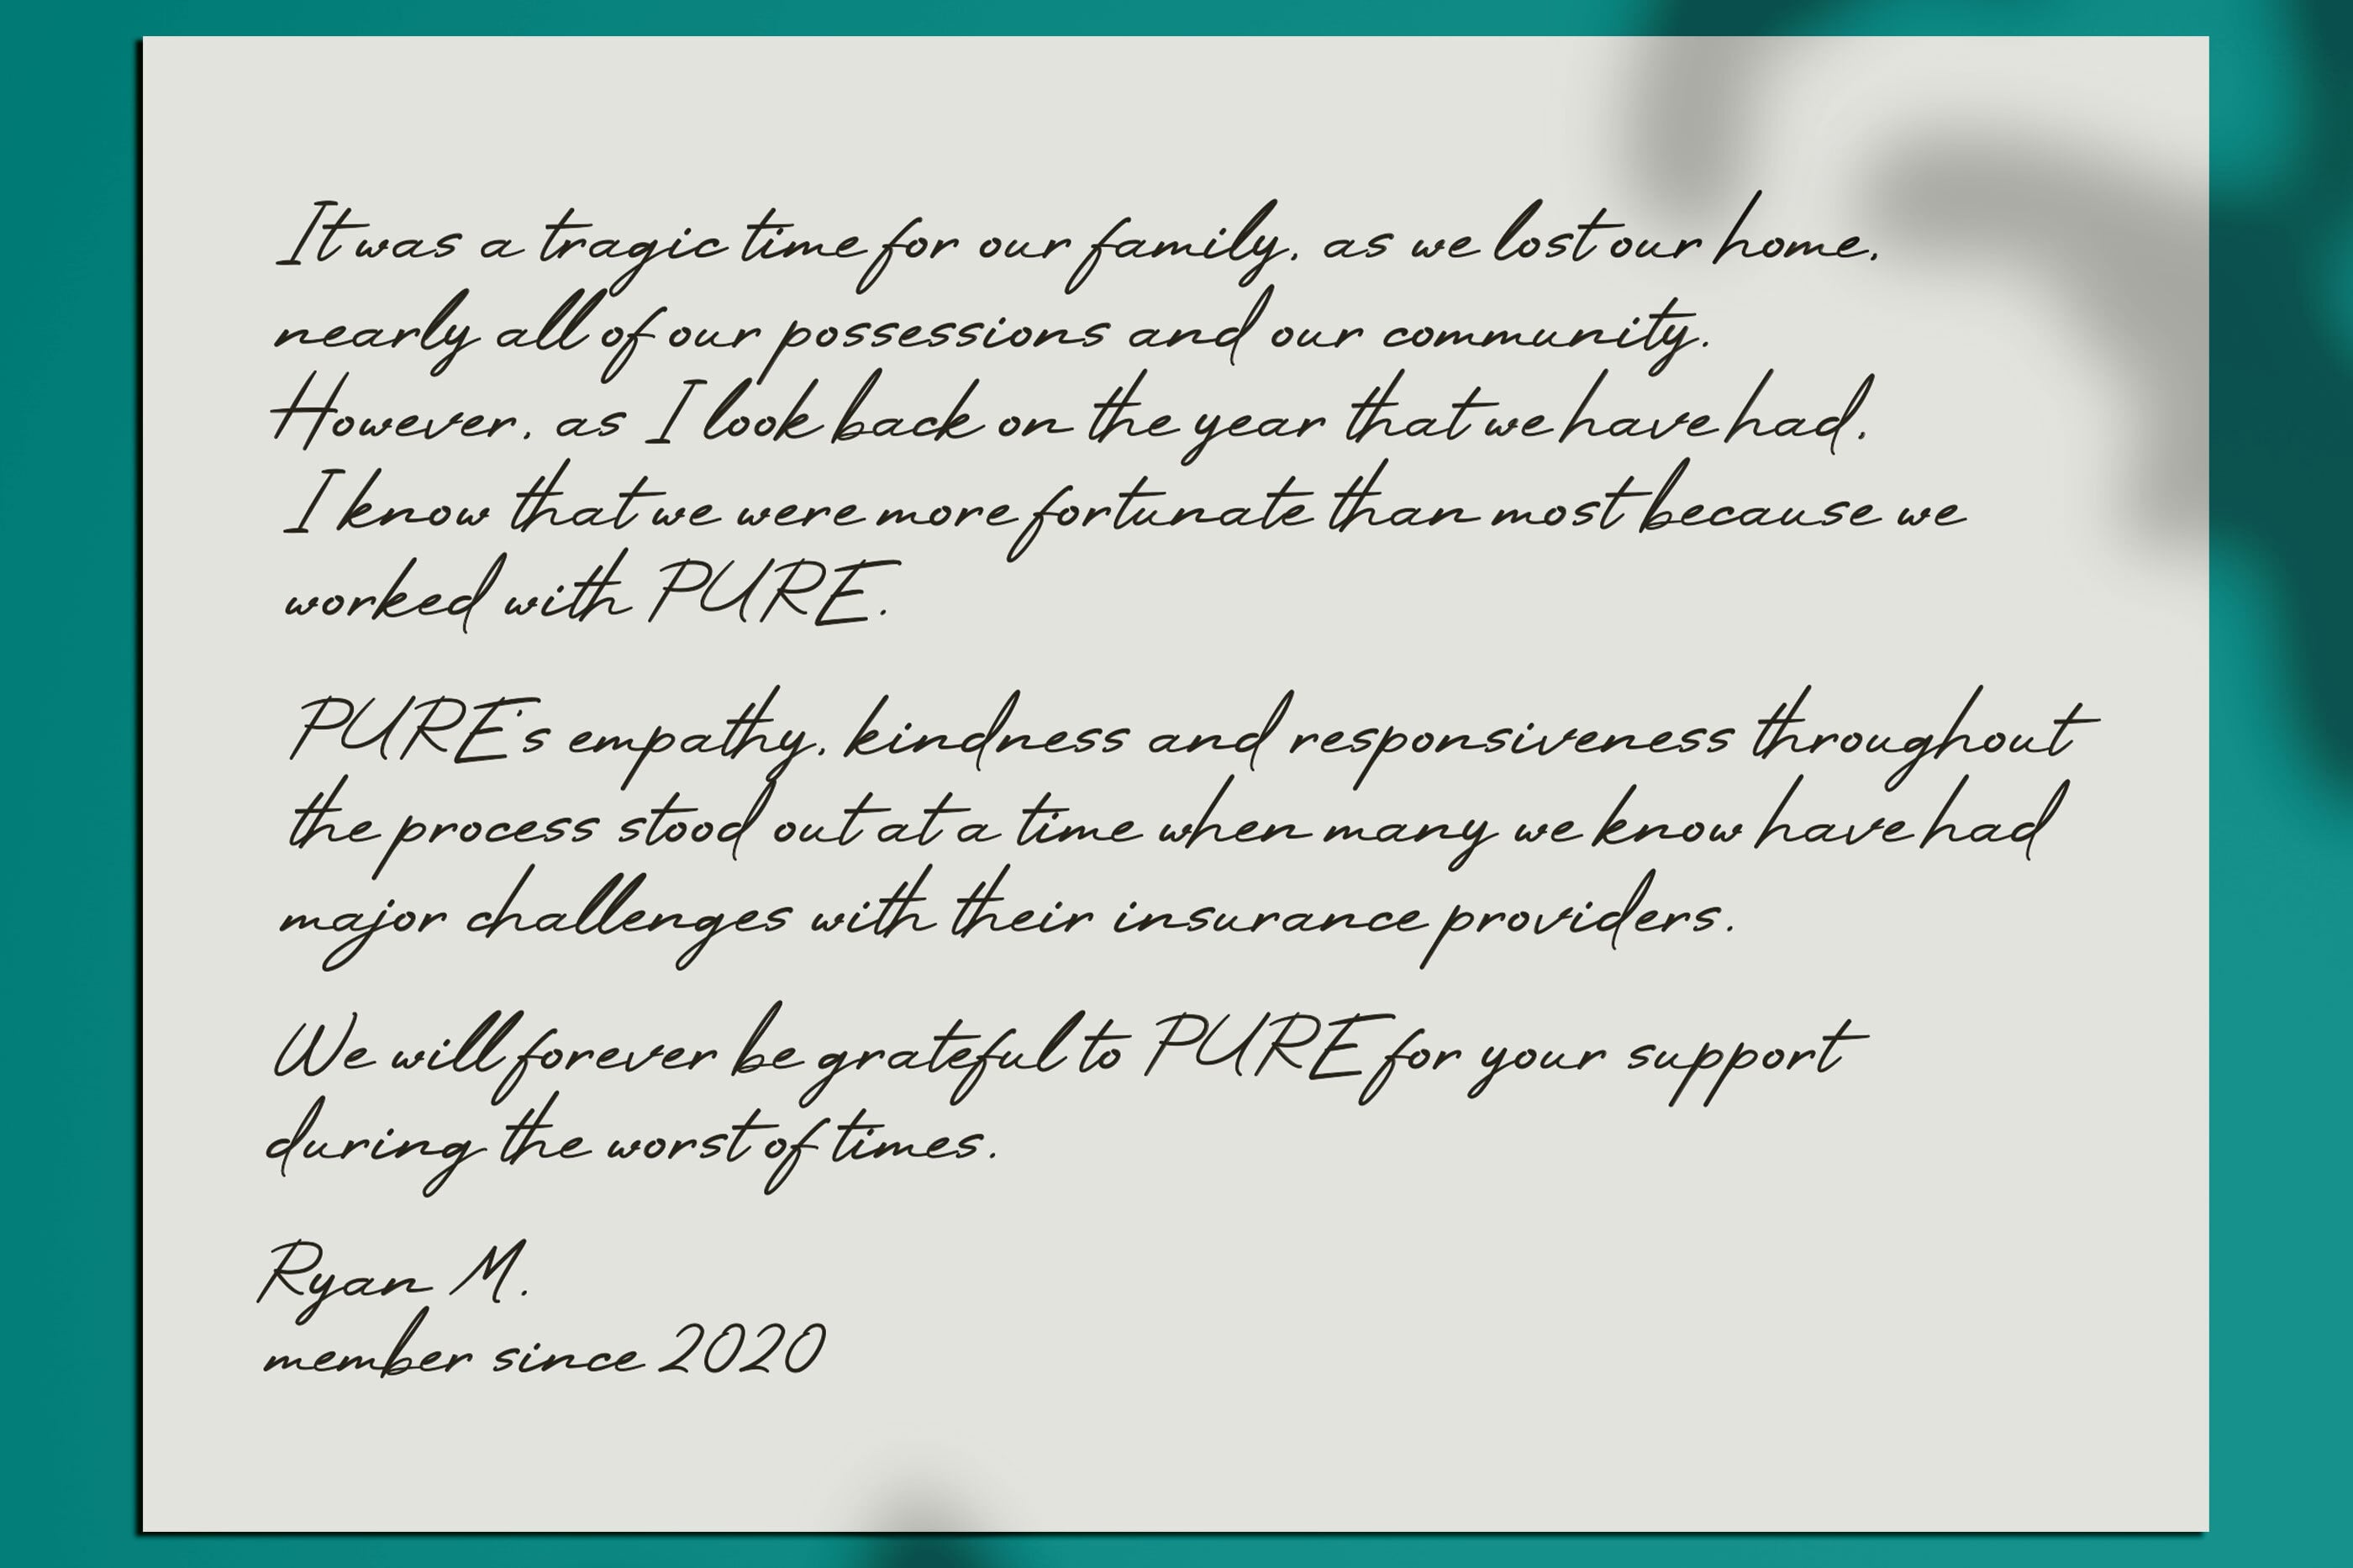 It was a tragic time for our family, as we lost our home,
nearly all of our possessions and our community.
However, as I look back on the year that we have had,
I know that we were more fortunate than most because we
worked with PURE.
PURE's empathy, kindness and responsiveness throughout
the process stood out at a time when many we know have had
major challenges with their insurance providers.
We will forever be grateful to PURE for your support
during the worst of times.
Ryan M.
member since 2020